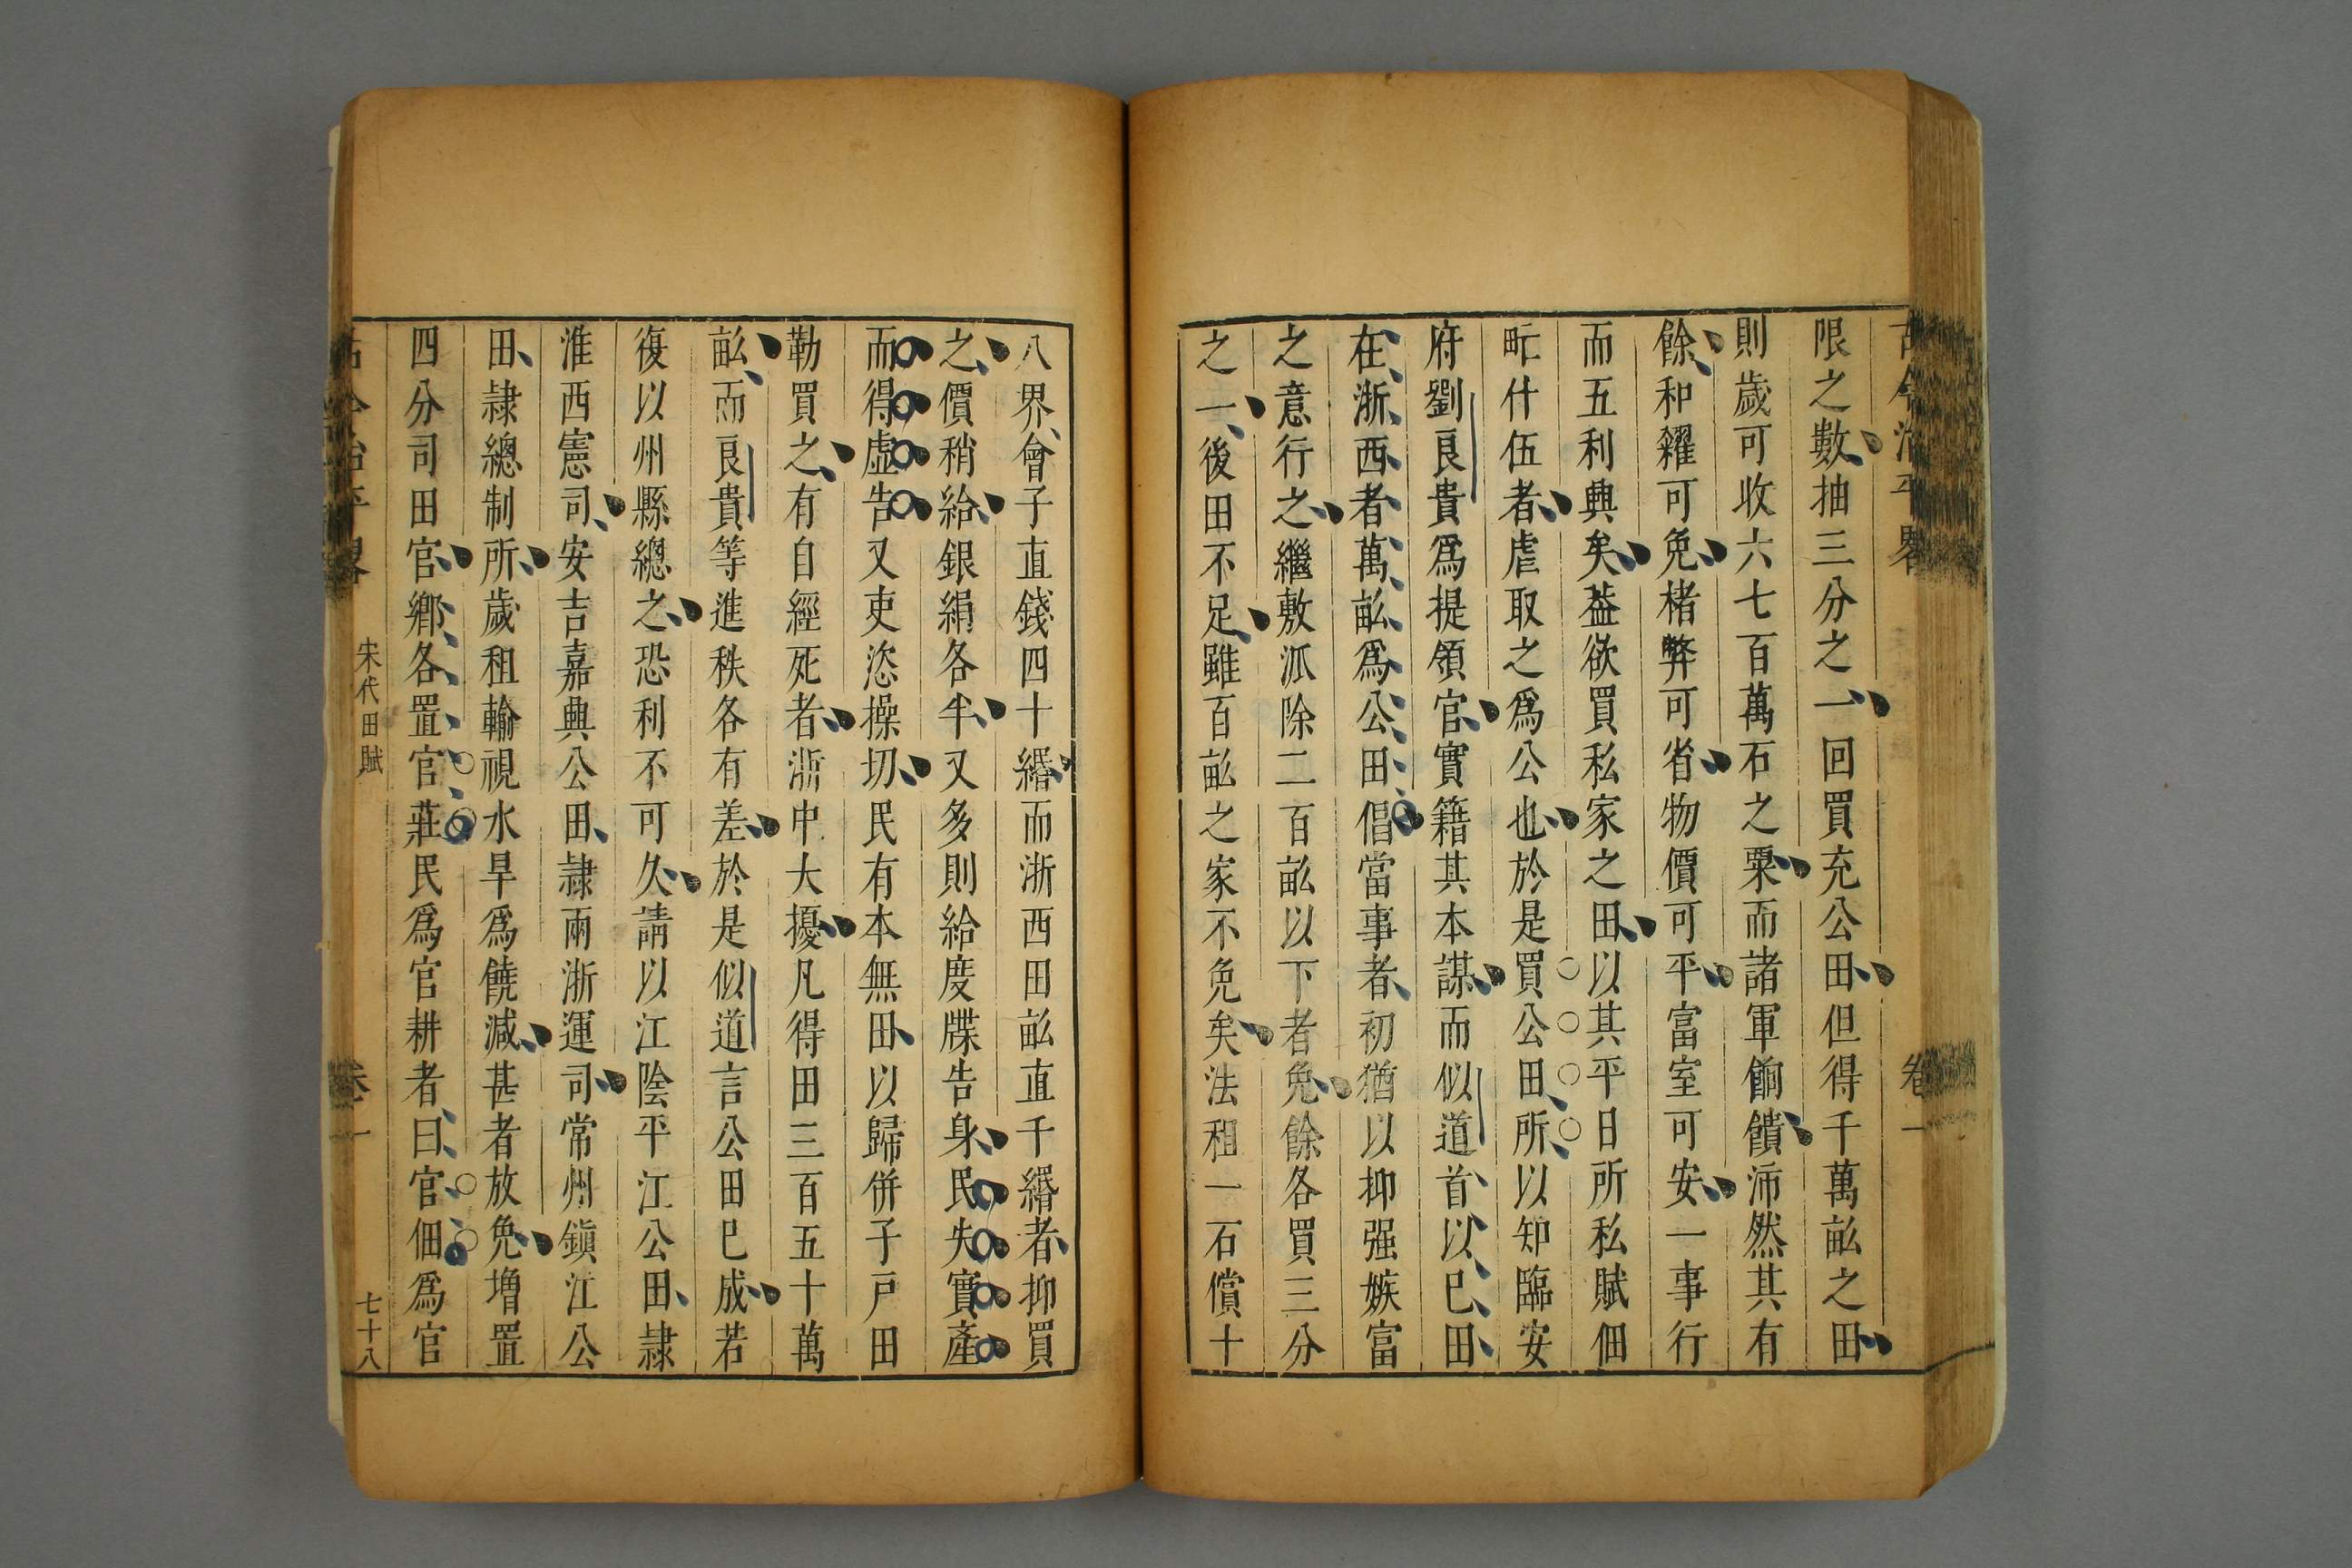 古今治平畧
卷一
限之數抽三分之一回買充公田但得千萬畝之田
則歲可收六七百萬石之粟而諸軍餉饋沛然其有
餘和糴可免楮弊可省物價可平富室可安一事行
而五利興矣葢欲買私家之田以其平日所私賦佃
甿什伍者虐取之爲公也於是買公田所以知臨安
府劉良貴爲提領官實籍其本謀而似道首以已田
在浙西者萬畝爲公田倡當事者初猶以抑强嫉富
之意行之繼敷派除二百畝以下者免餘各買三分
之一後田不足雖百畝之家不免矣法租一石償十
八界會子直錢四十緡而浙西田畝直千緡者抑買
之價稍給銀絹各半又多則給度牒告身民失實產
而得虛告又吏恣操切民有本無田以歸併子戸田
勒買之有自經死者浙中大擾凡得田三百五十萬
畝而良貴等進秩各有差於是似道言公田已成若
復以州縣總之恐利不可久請以江陰平江公田隸
淮西憲司安吉嘉興公田隸兩浙運司常州鎭江公
田隸總制所歲租輸視水旱爲饒減甚者放免增置
四分司田官鄉各置官莊民爲官耕者曰官佃爲官
古今治平畧
宋代田賦
卷一
七十八